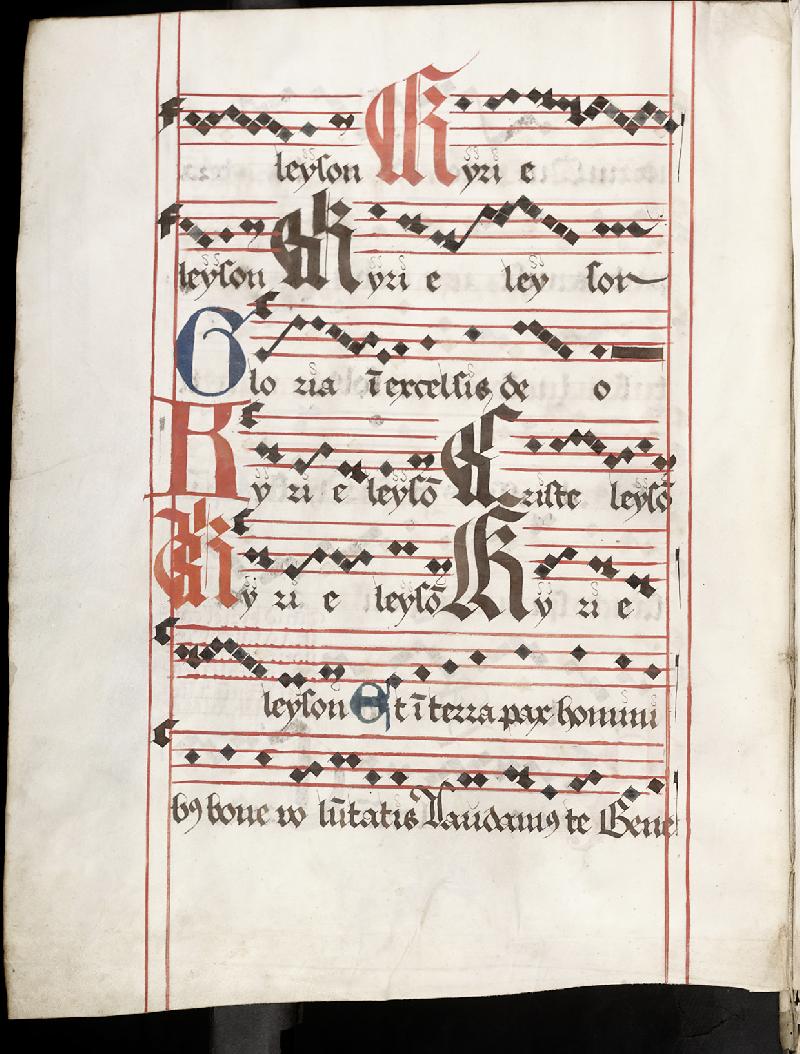 leyson Kyri e
leyson Kyri e ley son
Glo ria ī excelsis de o
Ky ri e leysō Criste leysō
Ky ri e leysō Ky ri e
leyson Et ī terra pax homini
bꝰ bone vo lūtatis Laudamꝰ te Bene